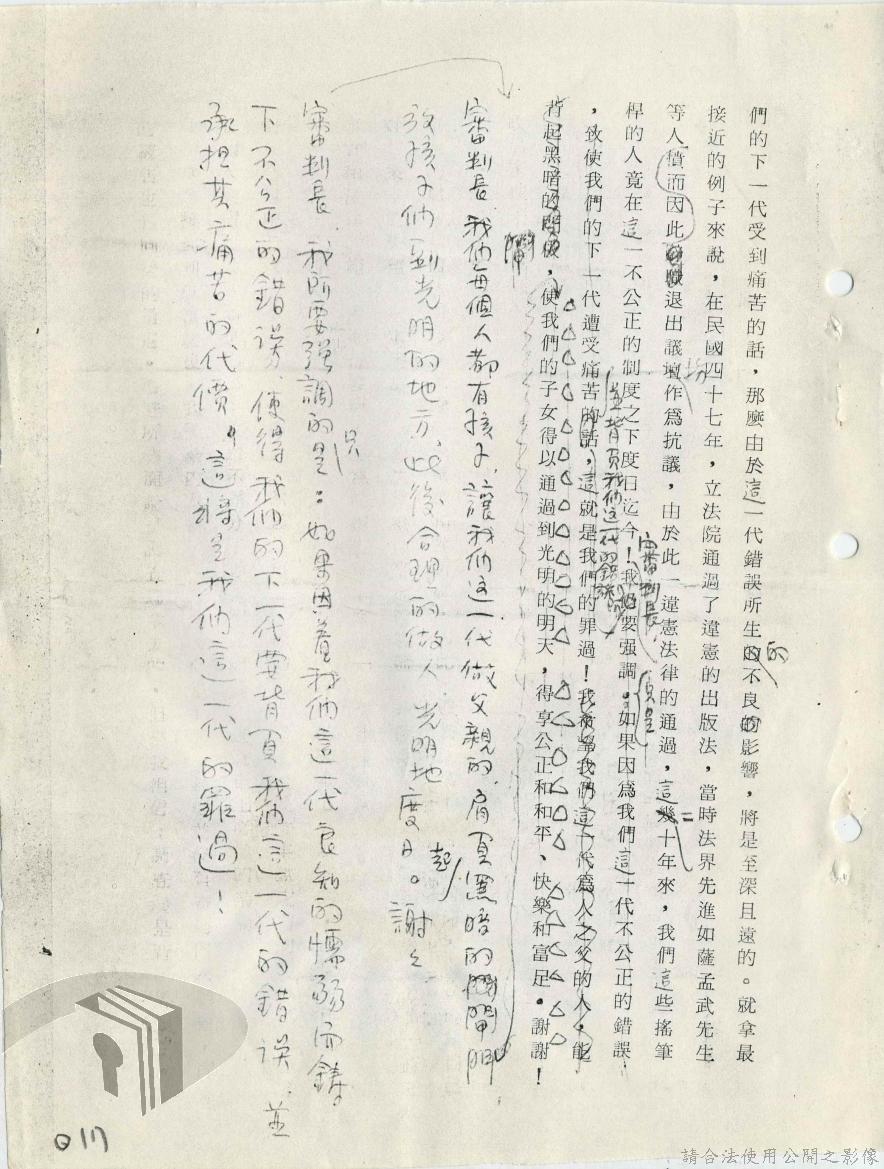 們的下一代受到痛苦的話，那麼由於這一代錯誤所生的不良的影響，將是至深且遠的。就拿最
的
接近的例子來說，在民國四十七年，立法院通過了違憲的出版法，當時法界先進如薩孟武先生
等人憤而因此退出議壇作爲抗議，由於此一違憲法律的通過，這幾十年來，我們這些搖筆
場
二
桿的人竟在這一不公正的制度之下度日迄今！我們要强調。如果因爲我們這一代不公正的錯誤
審判長
，致使我們的下一代遭受痛苦的話，這就是我們的罪過！我希望我們這一代爲人之父的人，能
並背負我們這一代的錯誤
背起黑暗的閘門，使我們的子女得以通過到光明的明天，得享公正和和平、快樂和富足。謝謝！
閘
審判長、我們每個人都有孩子，讓我們這一代做父親的，肩負黑暗的閘門
起
放孩子們到光明的地方，此後合理的做人，光明地度日。謝謝
審判長、我所要强調的是：如果因着我們這一代良知的懦弱而鑄
只
下不公正的錯誤，使得我們的下一代要背負我們這一代的錯誤，並
承担其痛苦的代價，這將是我們這一代的罪過！
017
請合法使用公開之影像